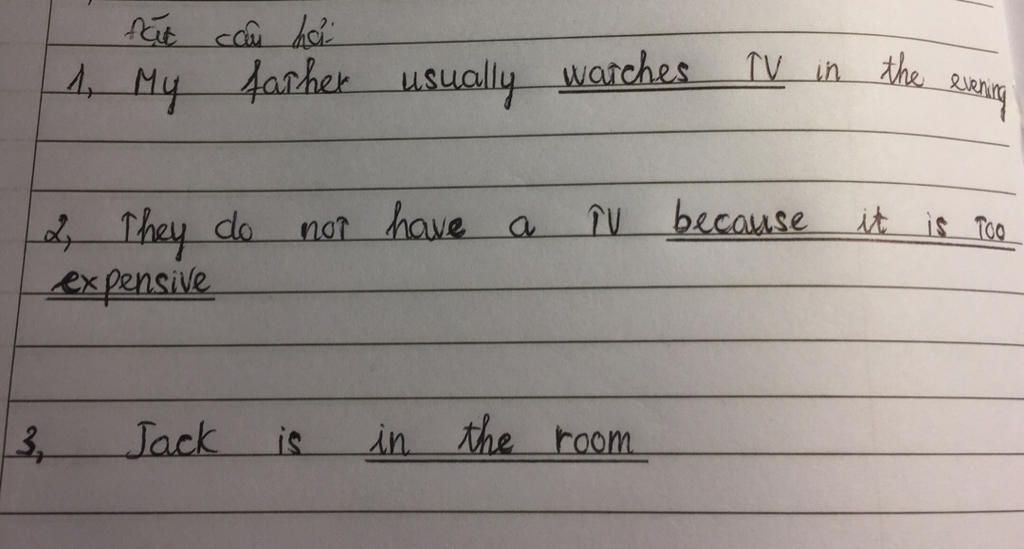 Đặt câu hỏi:
1, My father usually watches TV in the evening
2, They do not have a TV because it is too
expensive
3, Jack is in the room